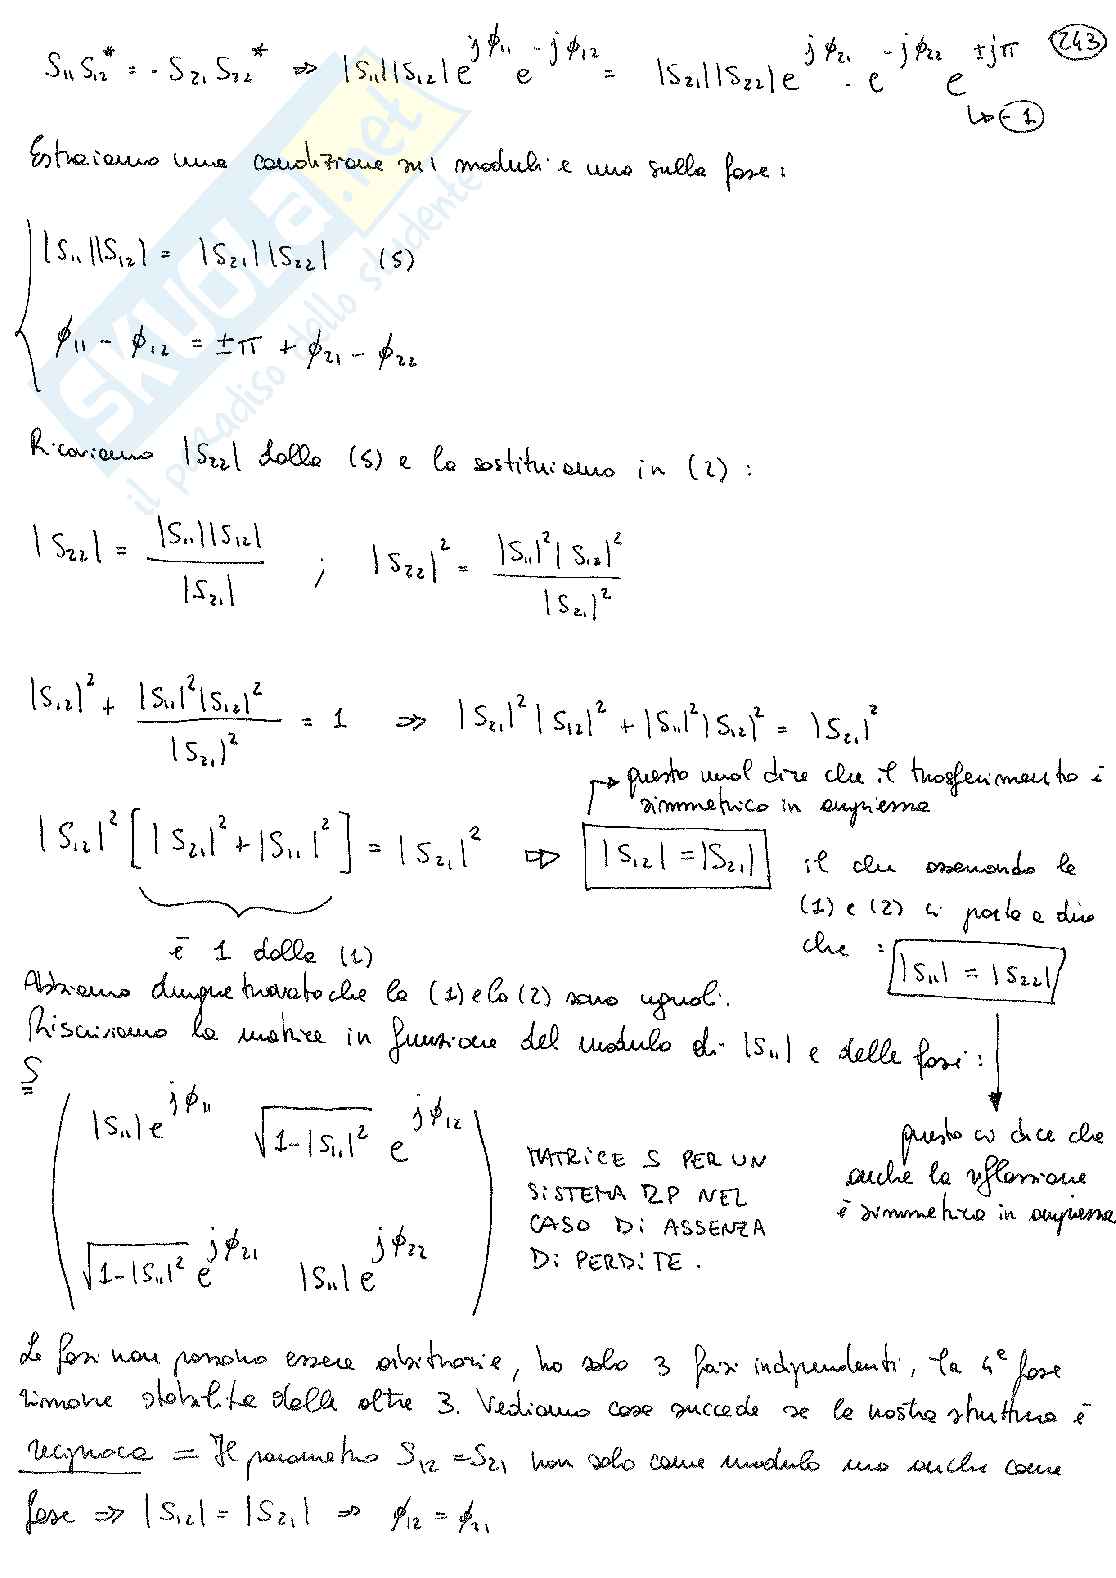 S₁₁S₁₂* = - S₂₁ S₂₂* ⇒ |S₁₁||S₁₂| e^{jφ₁₁} e^{-jφ₁₂} = |S₂₁||S₂₂| e^{jφ₂₁} · e^{-jφ₂₂} e^{±jπ} (243)
↳ (-1)
Estraiamo una condizione sui moduli e una sulla fase:
|S₁₁||S₁₂| = |S₂₁||S₂₂| (5)
φ₁₁ - φ₁₂ = ±π + φ₂₁ - φ₂₂
Ricaviamo |S₂₂| dalla (5) e la sostituiamo in (2):
|S₂₂| = |S₁₁||S₁₂| / |S₂₁| ; |S₂₂|² = |S₁₁|²|S₁₂|² / |S₂₁|²
|S₁₂|² + |S₁₁|²|S₁₂|² / |S₂₁|² = 1 ⇒ |S₂₁|²|S₁₂|² + |S₁₁|²|S₁₂|² = |S₂₁|²
→ questo vuol dire che il trasferimento è
simmetrico in ampiezza
|S₁₂|² [|S₂₁|² + |S₁₁|²] = |S₂₁|² ⇒ |S₁₂| = |S₂₁|
è 1 dalla (1)
il che osservando le
(1) e (2) ci porta a dire
che : |S₁₁| = |S₂₂|
Abbiamo dunque trovato che la (1) e la (2) sono uguali.
Riscriviamo la matrice in funzione del modulo di |S₁₁| e delle fasi:
S
|S₁₁| e^{jφ₁₁} √1-|S₁₁|² e^{jφ₁₂}
√1-|S₁₁|² e^{jφ₂₁} |S₁₁| e^{jφ₂₂}
MATRICE S PER UN
SISTEMA 2P NEL
CASO DI ASSENZA
DI PERDITE.
questo ci dice che
anche la riflessione
è simmetrica in ampiezza
Le fasi non possono essere arbitrarie, ho solo 3 fasi indipendenti, la 4ᵉ fase
rimane stabilita dalle altre 3. Vediamo cosa succede se la nostra struttura è
reciproca = Il parametro S₁₂ = S₂₁ non solo come modulo ma anche come
fase ⇒ |S₁₂| = |S₂₁| ⇒ φ₁₂ = φ₂₁
SKUOLA.net
il paradiso dello studente